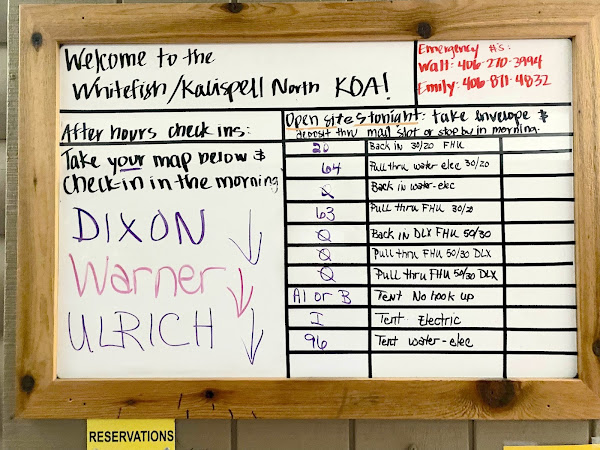 Welcome to the
Whitefish/Kalispell North KOA!
Emergency #'s:
Wall: 406-270-3994
Emily: 406-871-4832
After hours check ins:
Take your map below &
Check in in the morning
DIXON
Warner
ULRICH
Open sites tonight: take envelope &
deposit thru mail slot or stop by in morning.
20 Back in 30/20 FHU
64 Pull thru water elec 30/20
Back in water-elec
63 Pull thru FHU 30/20
Ø Back in DLX FHU 50/30
Ø Pull thru FHU 50/30 DLX
Ø Pull thru FHU 50/30 DLX
A1 or B Tent No hook up
I Tent Electric
96 Tent water-elec
RESERVATIONS